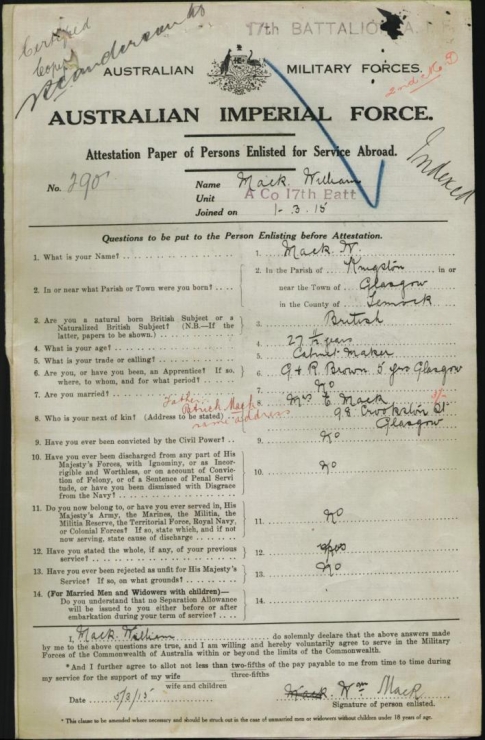 Certified
Copy
17th BATTALION A.
AUSTRALIAN MILITARY FORCES.
2nd
AUSTRALIAN IMPERIAL FORCE.
Indexed
Attestation Paper of Persons Enlisted for Service Abroad.
No. 390 Name Mack William
Unit A Co 17th Batt
Joined on 1. 3. 15
Questions to be put to the Person Enlisting before Attestation.
1. What is your Name? 1. Mack W.
2. In or near what Parish or Town were you born? 2. In the Parish of Kingston in or
near the Town of Glasgow
in the County of
3. Are you a natural born British Subject or a
Naturalized British Subject? (N.B.—If the
latter, papers to be shown.) 3. British
4. What is your age? 4. 27 ½ years
5. What is your trade or calling? 5. Cabinet Maker
6. Are you, or have you been, an Apprentice? If so,
where, to whom, and for what period? 6. G & R. Brown 5 yrs Glasgow
7. Are you married? 7. No
Father
Patrick Mack
same address
8. Who is your next of kin? (Address to be stated) 8. Mrs E Mack
98 Crookston St
Glasgow
9. Have you ever been convicted by the Civil Power? 9. No
10. Have you ever been discharged from any part of His
Majesty's Forces, with Ignominy, or as Incor-
rigible and Worthless, or on account of Convic-
tion of Felony, or of a Sentence of Penal Servi-
tude, or have you been dismissed with Disgrace
from the Navy? 10. No
11. Do you now belong to, or have you ever served in, His
Majesty's Army, the Marines, the Militia, the
Militia Reserve, the Territorial Force, Royal Navy,
or Colonial Forces? If so, state which, and if not
now serving, state cause of discharge 11. No
12. Have you stated the whole, if any, of your previous
service? 12.
13. Have you ever been rejected as unfit for His Majesty's
Service? If so, on what grounds? 13. No
14. (For Married Men and Widowers with children)—
Do you understand that no Separation Allowance
will be issued to you either before or after
embarkation during your term of service? 14.
I, Mack William do solemnly declare that the above answers made
by me to the above questions are true, and I am willing and hereby voluntarily agree to serve in the Military
Forces of the Commonwealth of Australia within or beyond the limits of the Commonwealth.
*And I further agree to allot not less than two-fifths of the pay payable to me from time to time during
three-fifths
my service for the support of my wife
wife and children
Date 5/2/15 Mack Wm Mack
Signature of person enlisted.
* This clause to be amended where necessary and should be struck out in the case of unmarried men or widowers without children under 18 years of age.